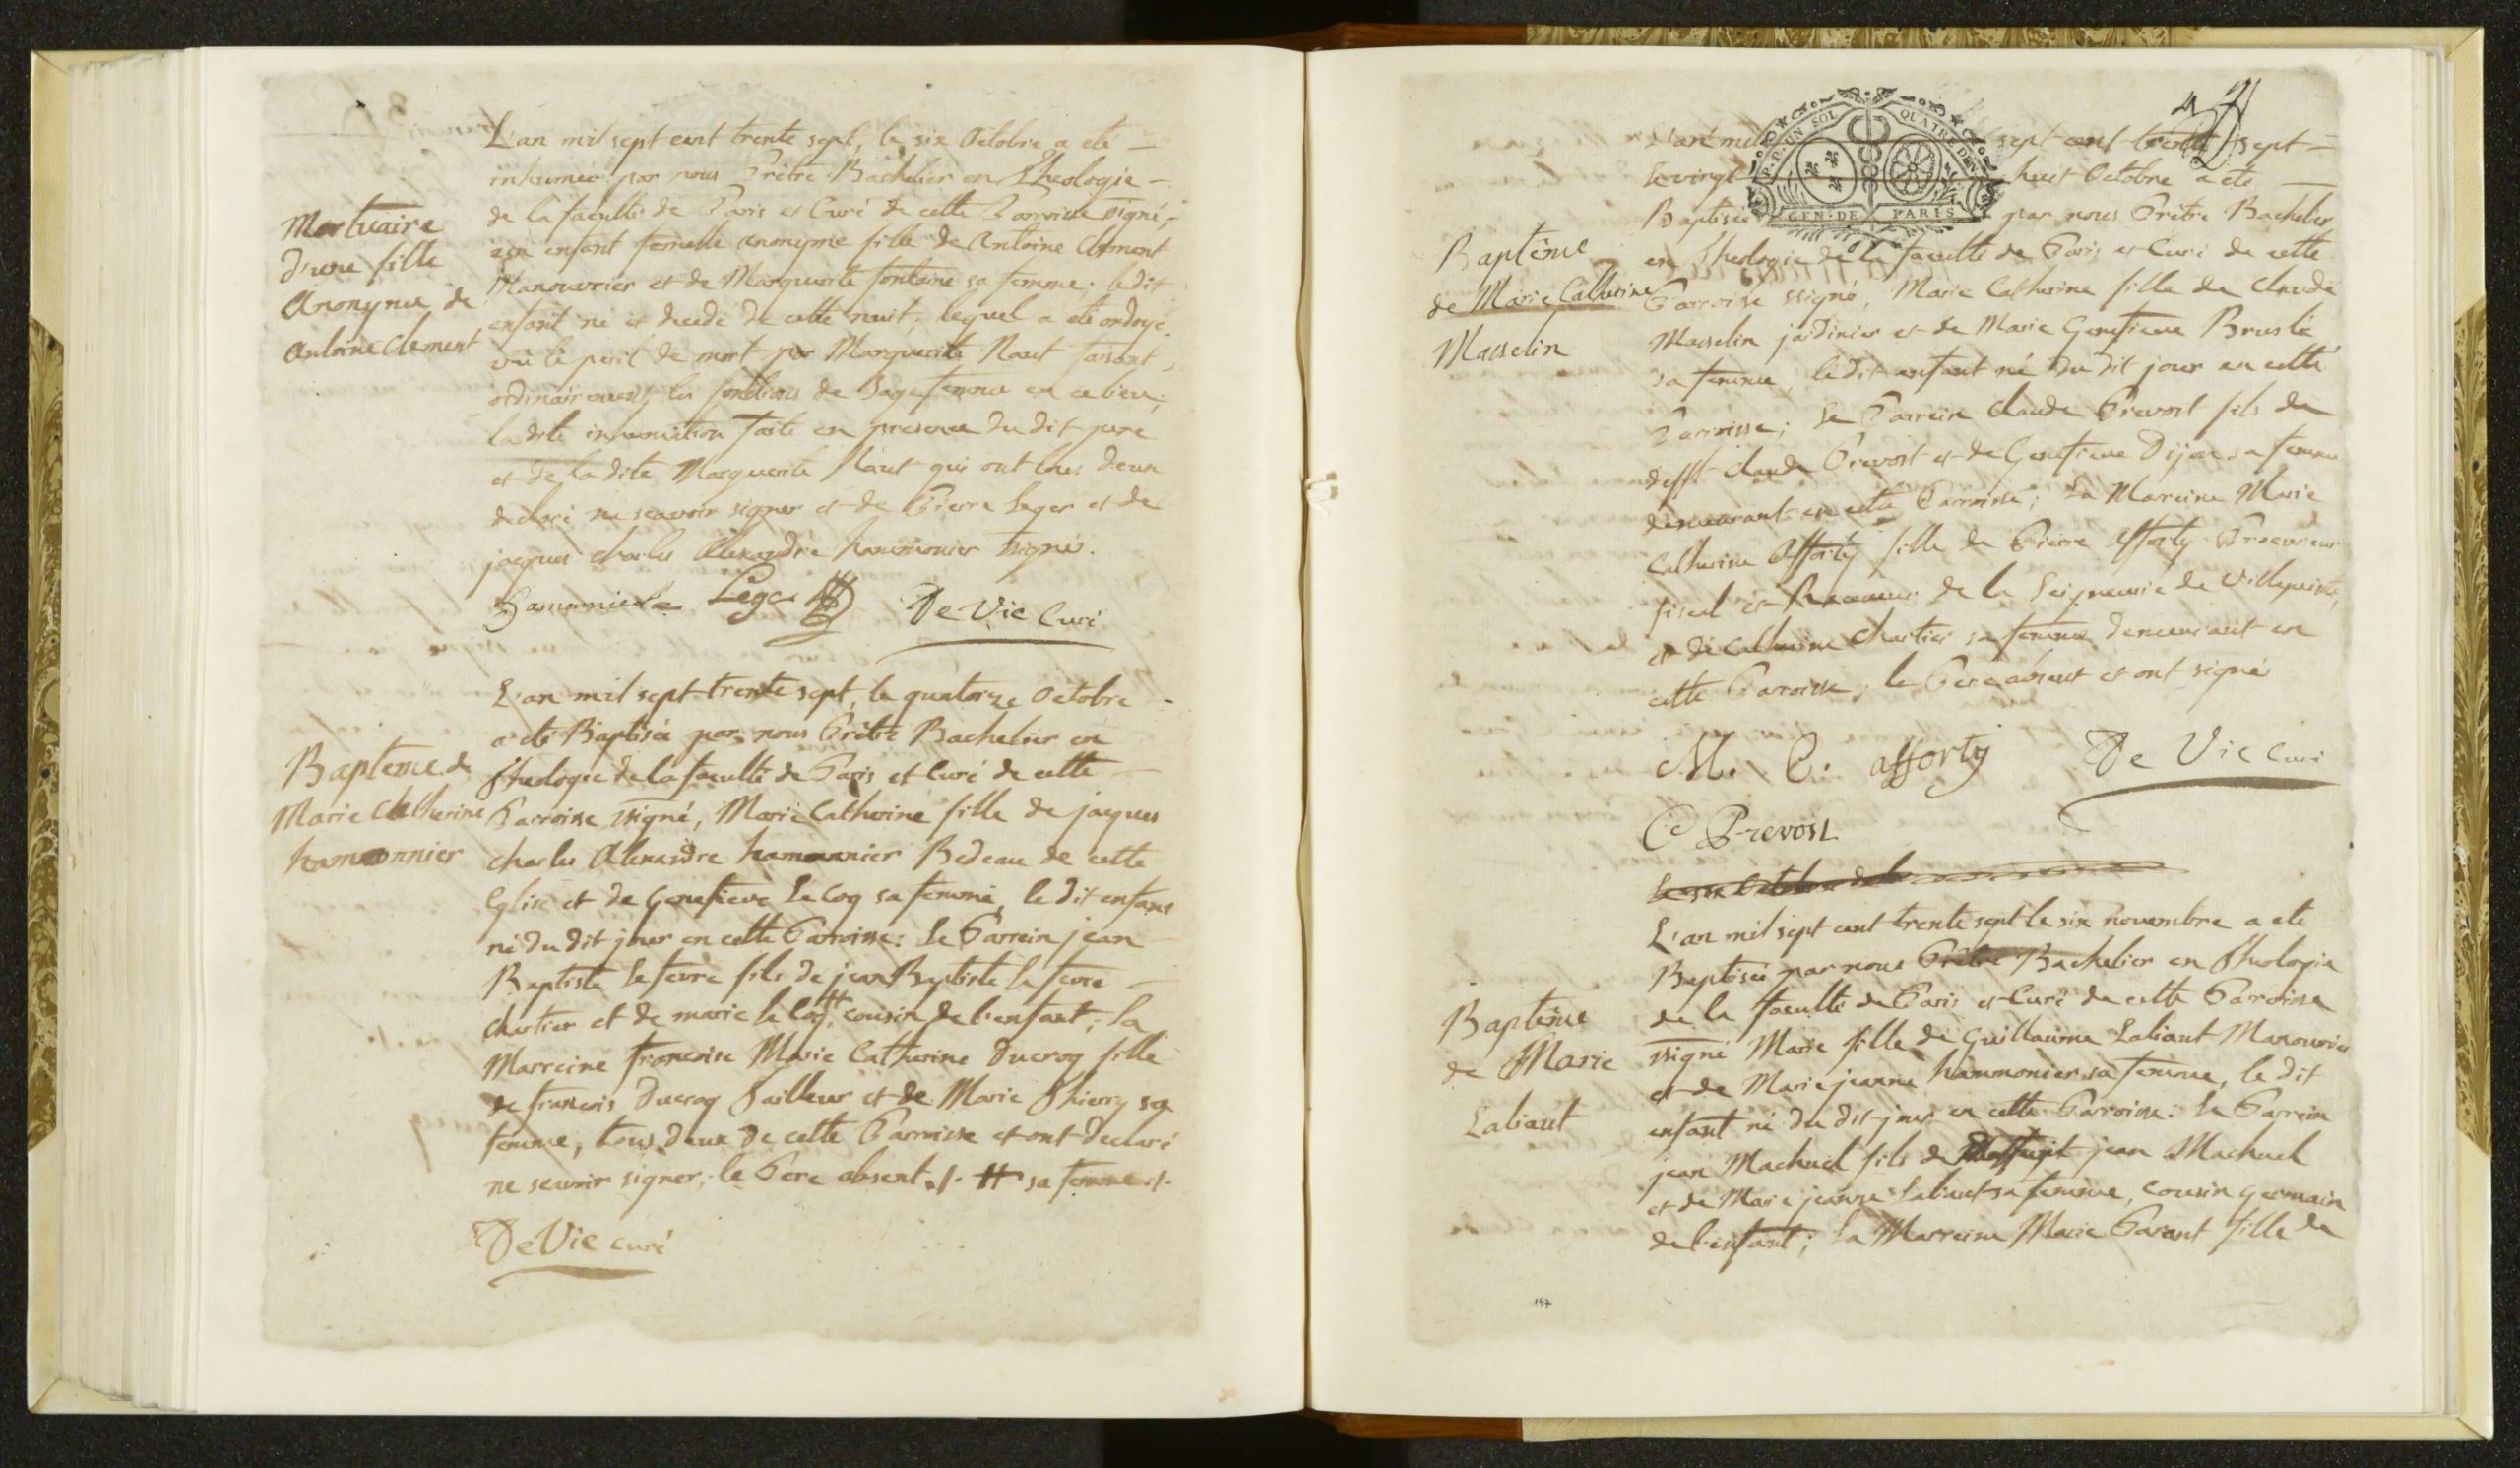 L'an mil sept cent trente sept, le six Octobre a eté
inhumée par nous Prêtre Bachelier en Theologie
de la faculté de Paris et Curé de cette Parroisse ssigné,
un enfant femelle anonyme fille de Antoine Clement
Manouvrier et de Marguerite fontaine sa femme, ledit
enfant né et decedé de cette nuit, lequel a eté ondoyé
vû le peril de mort par Marguerite Naut faisant
ordinairement les fonctions de Sage femme en ce lieu;
ladite inhumation faite en presence du dit pere
et de la dite Marguerite Naut qui ont tous deux
declaré ne scavoir signer et de Pierre Leger et de
jacques charles Alexandre hammonier ssignés.
Mortuaire
d'une fille
Anonyme de
Antoine Clement
hamonnier Leger De Vie Curé
L'an mil sept trente sept, le quatorze Octobre
a eté Baptisée par nous Prêtre Bachelier en
Theologie de la faculté de Paris et Curé de cette
Parroisse ssigné, Marie Catherine fille de jacques
charles Alexandre hamonnier Bedeau de cette
Eglise et de Genefieve Le Coq sa femme, le dit enfant
né du dit jour en cette Parroisse: Le Parrein jean
Baptiste Lefevre fils de jean Baptiste Lefevre
chartier et de marie le Coq # cousin de l'enfant; la
Marreine francoise Marie Catherine Ducroq fille
de francois Ducroq Tailleur et de Marie Thierry sa
femme, tous deux de cette Parroisse et ont declaré
ne scavoir signer; le Pere absent ./. # sa femme ./.
Bapteme de
Marie Catherine
hamonnier
De Vie curé
L'an mil sept cent trente sept
le vingt huit Octobre a eté
Baptisée par nous Prêtre Bachelier
en Theologie de la faculté de Paris et Curé de cette
Parroisse ssigné, Marie Catherine fille de Claude
Masselin jardinier et de Marie Genefieve Bruslé
sa femme, ledit enfant né du dit jour en cette
Parroisse; Le Parrein Claude Prevost fils de
defft Claude Prevost et de Genefieve Dijon sa femme
demeurant en cette Parroisse; La Marreine Marie
Catherine Afforty fille de Pierre Afforty Procureur
fiscal et Receveur de la Seigneurie de Villepinte,
et de Catherine Chartier sa femme demeurant en
cette Parroisse, le Pere absent et ont signé
P.P. UN SOL QUATRE DEN.
GEN·DE PARIS
Baptême
de Marie Catherine
Masselin
M. C. afforty De Vie Curé
C Prevost
L'an mil sept cent trente sept le six novembre a eté
Baptisée par nous Prêtre Bachelier en Theologie
de la faculté de Paris et Curé de cette Parroisse
ssigné Marie fille de Guillaume Labiaut Manouvrier
et de Marie jeanne hammonier sa femme, le dit
enfant né du dit jour en cette Parroisse: Le Parrein
jean Machuel fils de jean Machuel
et de Marie jeanne Labiaut sa femme, cousin germain
de l'enfant; La Marreine Marie Parant fille de
Baptême
de Marie
Labiaut
147